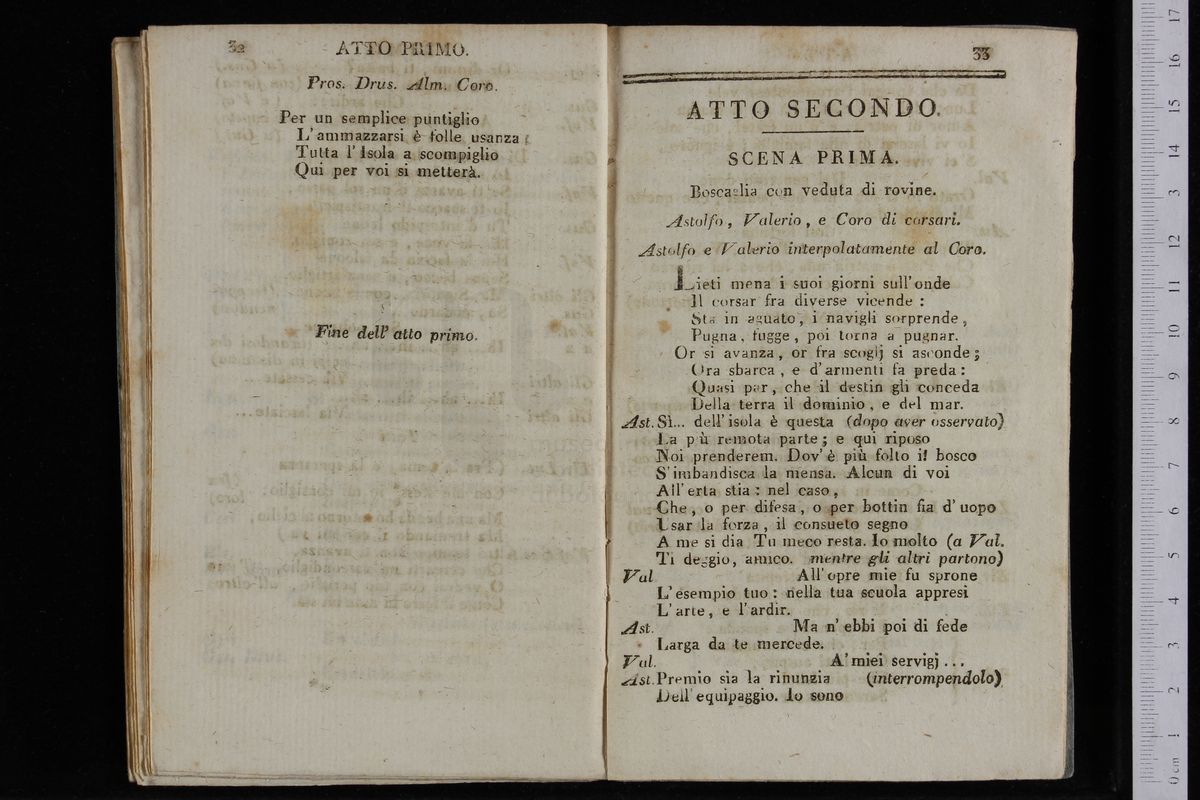 32
ATTO PRIMO.
Pros. Drus. Alm. Coro.
Per un semplice puntiglio
L' ammazzarsi è folle usanza:
Tutta l' Isola a scompiglio
Qui per voi si metterà.
Fine dell' atto primo.
33
ATTO SECONDO.
SCENA PRIMA.
Boscaglia con veduta di rovine.
Astolfo, Valerio, e Coro di corsari.
Astolfo e Valerio interpolatamente al Coro.
Lieti mena i suoi giorni sull' onde
Il corsar fra diverse vicende :
Sta in aguato, i navigli sorprende,
Pugna, fugge, poi torna a pugnar.
Or si avanza, or fra scoglj si asconde;
Ora sbarca, e d' armenti fa preda:
Quasi par, che il destin gli conceda
Della terra il dominio, e del mar.
Ast. Sì... dell' isola è questa (dopo aver osservato)
La più remota parte; e qui riposo
Noi prenderem. Dov' è più folto il bosco
S' imbandisca la mensa. Alcun di voi
All' erta stia: nel caso,
Che, o per difesa, o per bottin fia d' uopo
Usar la forza, il consueto segno
A me si dia. Tu meco resta. Io molto (a Val.
Ti deggio, amico. mentre gli altri partono)
Val. All' opre mie fu sprone
L' esempio tuo: nella tua scuola appresi
L' arte, e l' ardir.
Ast. Ma n' ebbi poi di fede
Larga da te mercede.
Val. A' miei servigj...
Ast. Premio sia la rinunzia (interrompendolo)
Dell' equipaggio. Io sono
0 cm 1 2 3 4 5 6 7 8 9 10 11 12 13 14 15 16 17